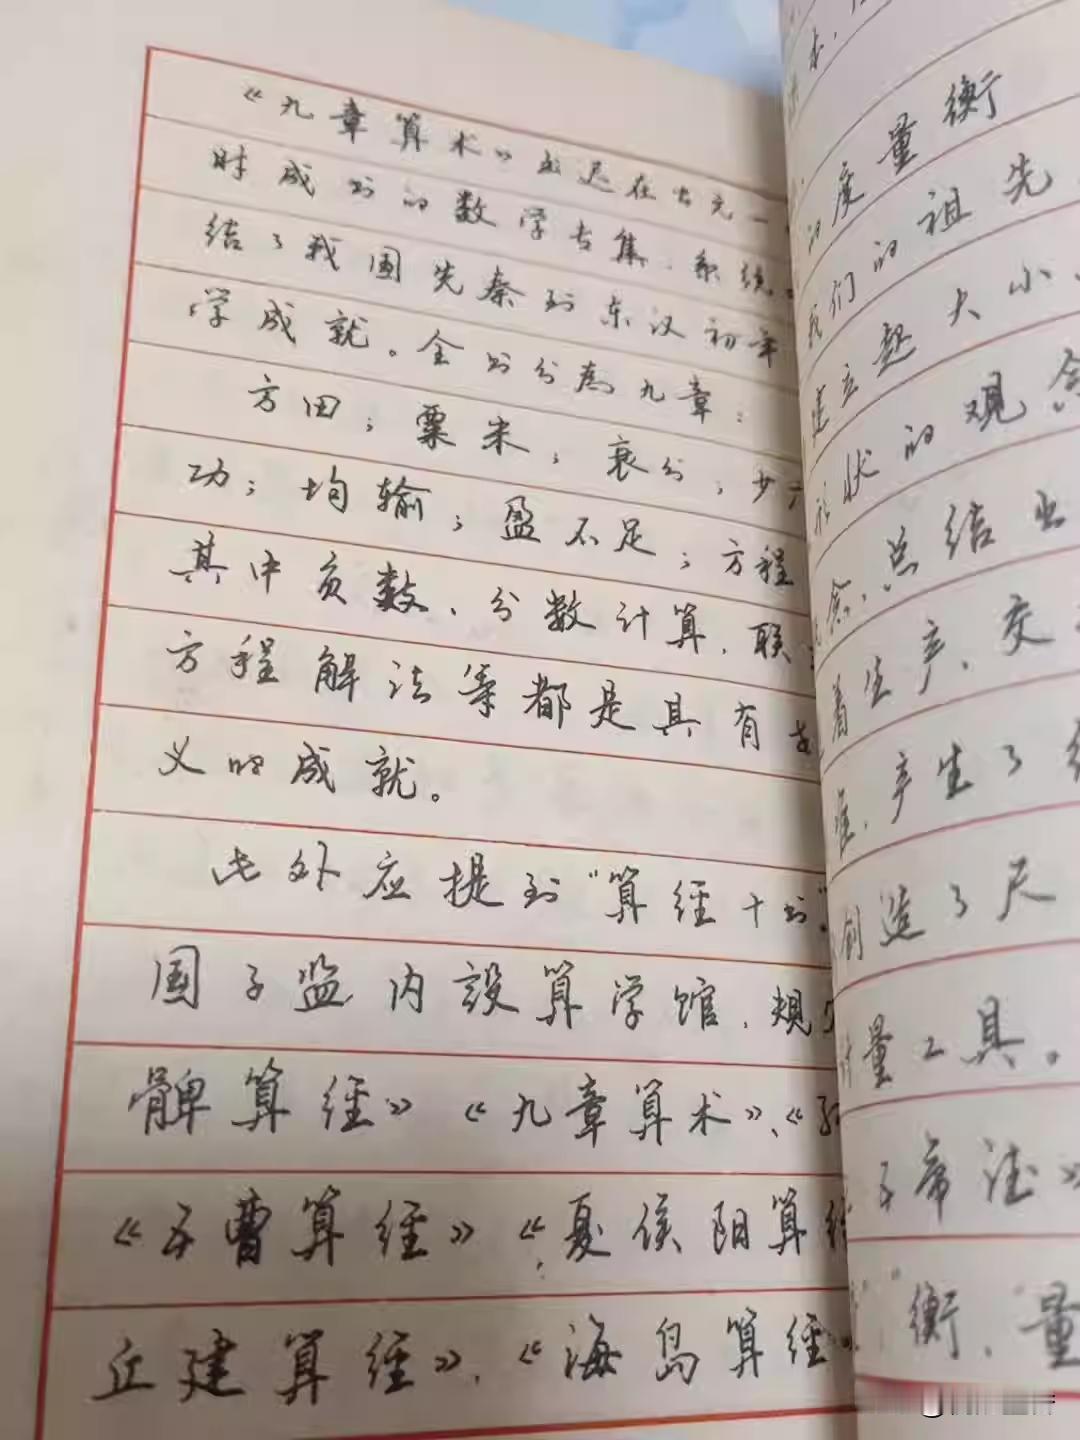 《九章算术》是迟在公元一
时成书的数学专集，系统
结了我国先秦到东汉初年
学成就。全书分为九章：
方田；粟米；衰分；少
功；均输；盈不足；方程
其中负数、分数计算，联
方程解法等都是具有
义的成就。
此外应提到“算经十书”
国子监内設算学馆，规
髀算经》《九章算术》、《
《五曹算经》《夏侯阳算经
丘建算经》、《海岛算经
本，
的度量衡
我们的祖先
建立起大小
形状的观念
念，总结出
着生产、交
准，产生了
创造了尺
计量工具。
五帝德》
“衡，量